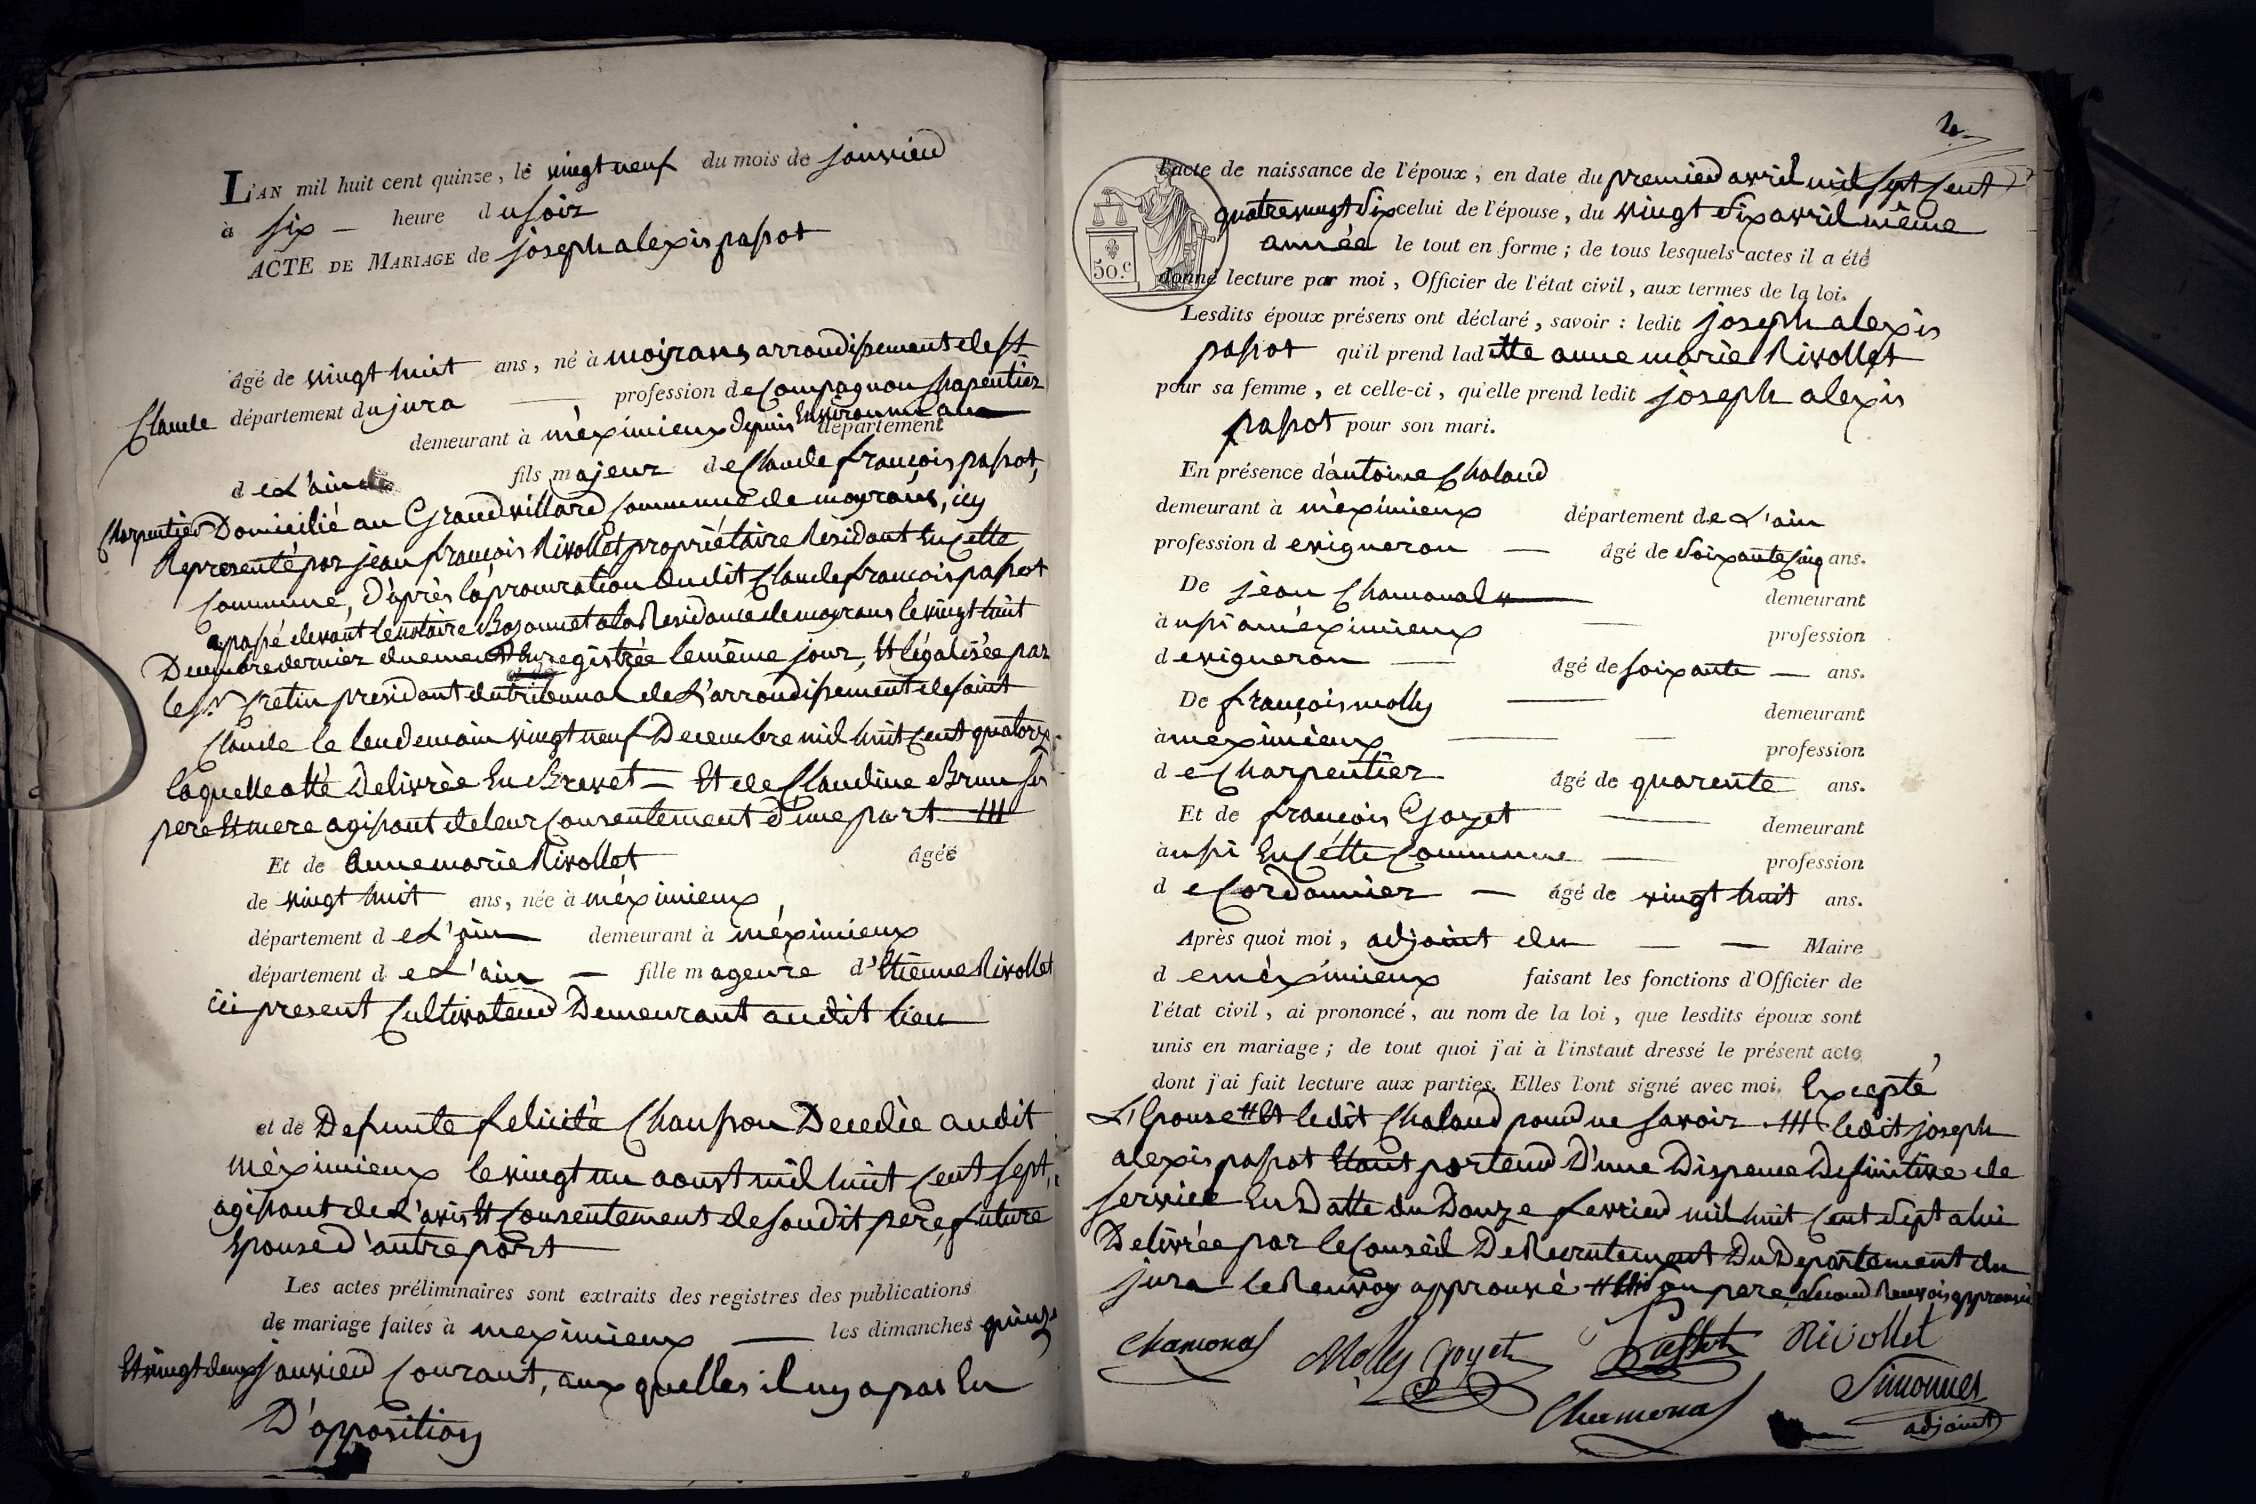 L'AN mil huit cent quinze, le vingt neuf du mois de janvier
à six heure du soir
ACTE DE MARIAGE de joseph alexis passot
âgé de vingt huit ans, né à moyrans arrondissement de St
Claude département du jura profession de Compagnon Charpentier
demeurant à méximieux depuis Environ un an département
de L'ain fils majeur de Claude françois passot,
Charpentier Domicilié au Grandvillard Commune de moyrans, icy
Représenté par jean françois Rivollet propriétaire Résidant En Cette
Commune, D'après la procuration dudit Claude françois passot
passé devant le notaire a la Residance de moyrans le vingt huit
Decembre dernier duement Enregistrée le même jour, Et légalisée par
le Sr Cretin president du tribunal de L'arrondissement de saint
Claude le lendemain vingt neuf Decembre mil huit Cent quatorze
laquelle a été Delivrée En Brevet — Et de Claudine Brun ses
pere Et mere agissant de leur Consentement d'une part
Et de anne marie Rivollet âgée
de vingt huit ans, née à méximieux,
département de L'ain demeurant à méximieux
département de L'ain fille mageure d'Etienne Rivollet
ici present Cultivateur Demeurant audit lieu
et de Defunte felicité Chausson Decedée audit
méximieux le vingt un aoust mil huit Cent sept,
agissant de L'avis Et Consentement de soudit pere, future
Epouse d'autre part
Les actes préliminaires sont extraits des registres des publications
de mariage faites à meximieux les dimanches quinze
Et vingt deux janvier Courant, aux quelles il ny a pas Eu
D'opposition
2
l'acte de naissance de l'époux, en date du premier avril mil sept Cent
50.c
quatre vingt six celui de l'épouse, du vingt six avril même
année le tout en forme; de tous lesquels actes il a été
donné lecture par moi, Officier de l'état civil, aux termes de la loi.
Lesdits époux présens ont déclaré, savoir: ledit joseph alexis
passot qu'il prend laditte anne marie Rivollet
pour sa femme, et celle-ci, qu'elle prend ledit joseph alexis
passot pour son mari.
En présence d'antoine Chaland
demeurant à méximieux département de L'ain
profession de vigneron âgé de soixante Cinq ans.
De jean Chamonal demeurant
aussi a méximieux profession
de vigneron âgé de soixante ans.
De françois molly demeurant
à meximieux profession
de Charpentier âgé de quarente ans.
Et de françois Goyet demeurant
aussi En Cétte Commune profession
de Cordonnier âgé de vingt huit ans.
Après quoi moi, adjoint du Maire
de méximieux faisant les fonctions d'Officier de
l'état civil, ai prononcé, au nom de la loi, que lesdits époux sont
unis en mariage; de tout quoi j'ai à l'instaut dressé le présent acte
dont j'ai fait lecture aux parties. Elles l'ont signé avec moi. Excepté
L'Epouse Et ledit Chaland pour ne savoir ledit joseph
alexis passot Etant porteur D'une Dispence Definitive de
service En Datte du Douze fevrier mil huit Cent sept a lui
Delivrée par le Conseil De Recrutement Du Departement du
jura le Renvoy approuvé son pere second Renvois approuvé
Chamonal Molly Goyet Passot Rivollet
Chamonal Simonnet
adjoint